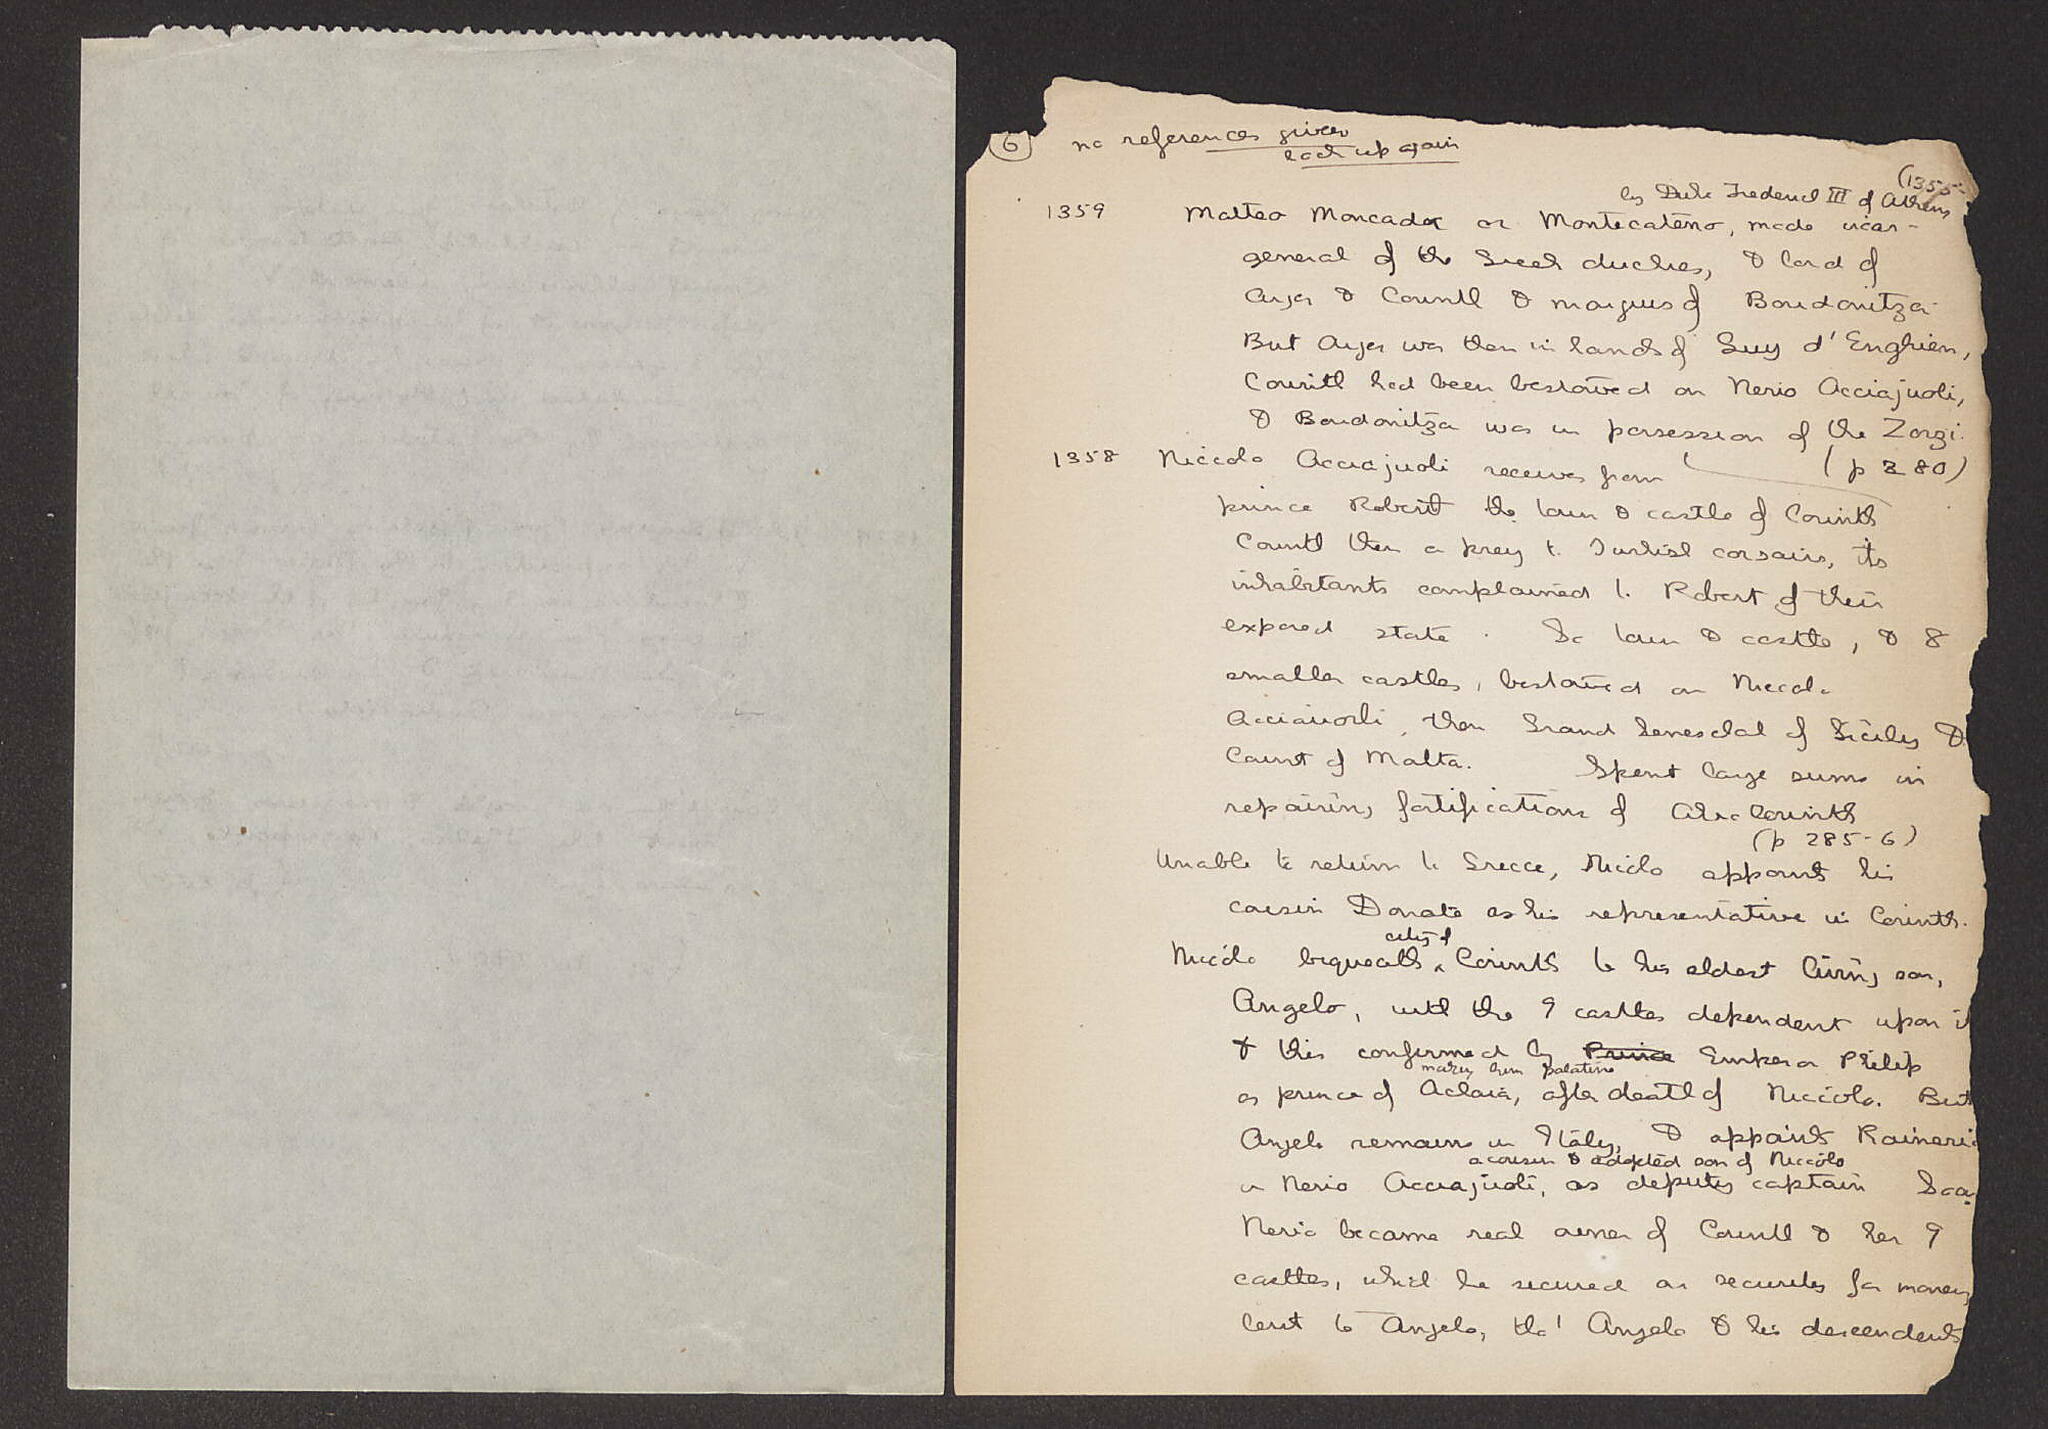 6 no references given
look up again
(1355-
by Duke Frederick III of Athens
1359 Matteo Moncada or Montecateno, made vicar-
general of the Greek duchies, & lord of
Argos & Corinth & marquis of Boudonitza.
But Argos was then in hands of Guy d'Enghien,
Corinth had been bestowed on Nerio Acciajuoli,
& Boudonitza was in possession of the Zorzi.
(p 280)
1358 Niccolo Acciajuoli receives from
prince Robert the town & castle of Corinth
Corinth then a prey to Turkish corsairs, its
inhabitants complained to Robert of their
exposed state. So town & castle, & 8
smaller castles, bestowed on Niccolo
Acciaiuoli, then Grand Seneschal of Sicily &
Count of Malta. Spent large sums in
repairing fortifications of Acrocorinth
(p 285-6)
Unable to return to Greece, Niccolo appoints his
cousin Donato as his representative in Corinth.
city of
Niccolo bequeaths Corinth to his eldest living son,
Angelo, with the 9 castles dependent upon it
& this confirmed by Prince Emperor Philip
making him palatine
as prince of Achaia, after death of Niccolo. But
Angelo remains in Italy, & appoints Rainerio
a cousin & adopted son of Niccolo
or Nerio Acciajuoli, as deputy captain Soon
Nerio became real owner of Corinth & her 9
castles, which he secured as security for money
lent to Angelo, tho' Angelo & his descendents